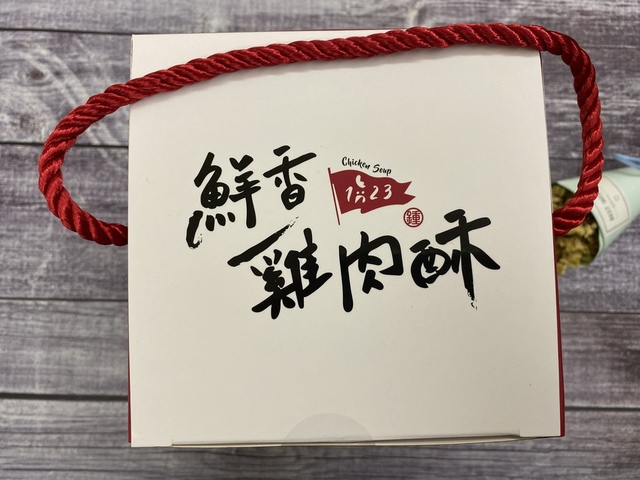 鮮香
Chicken Soup
1023
鍾
雞肉酥